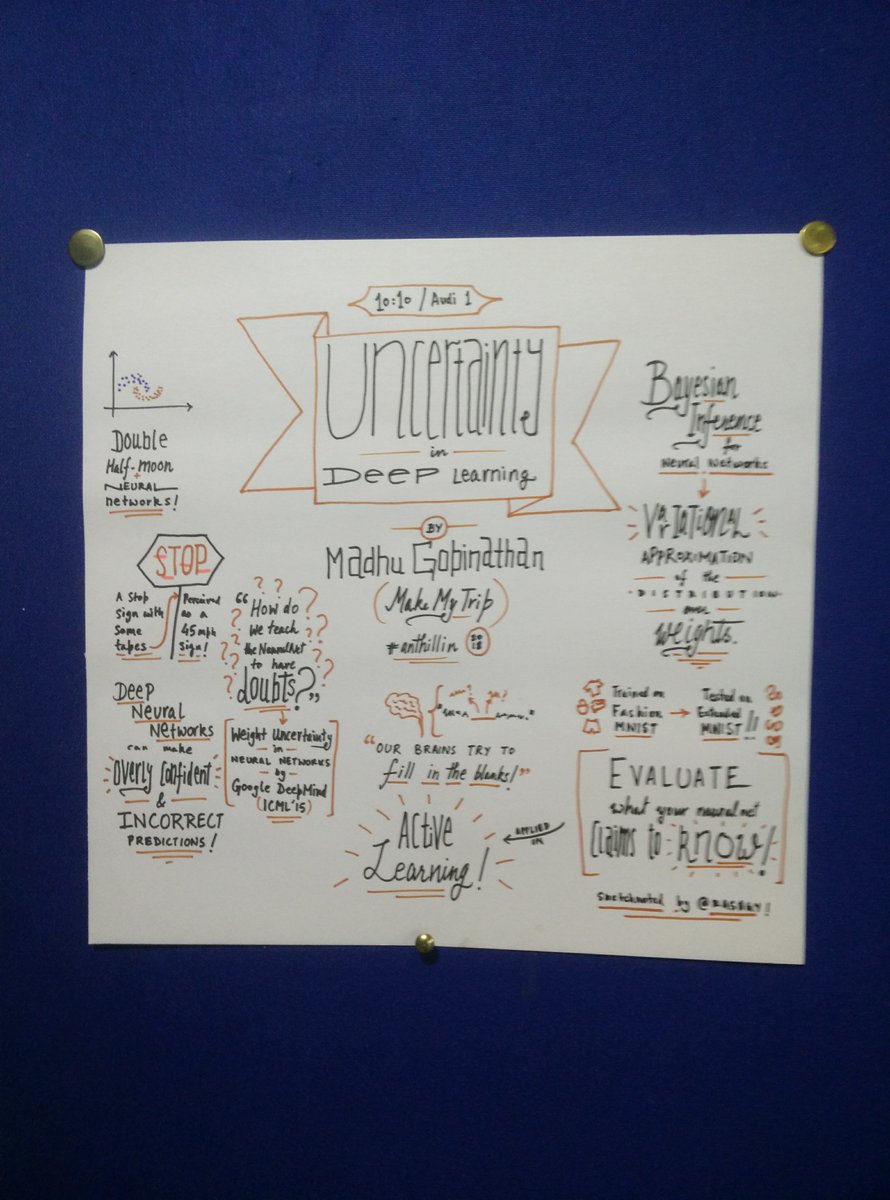 10:10 / Audi 1
Uncertainty
in
Deep Learning
BY
Madhu Gopinathan
(Make My Trip)
#anthillin 2018
Double
Half-moon
+
Neural
networks!
STOP
A Stop
Sign with
some
tapes
Perceived
as a
45 mph
Sign!
Deep
Neural
Networks
can make
Overly Confident
&
INCORRECT
PREDICTIONS!
“How do
we teach
the NeuralNet
to have
doubts?”
Weight Uncertainty
in
NEURAL NETWORKS
by
Google DeepMind
(ICML'15)
“OUR BRAINS TRY TO
fill in the blanks!”
Active
Learning!
APPLIED
IN
Bayesian
Inference
for
Neural Networks
Variational
APPROXIMATION
of the
DISTRIBUTION
over
weights.
Trained on
Fashion
MNIST
Tested on
Extended
MNIST!!
EVALUATE
what your neural net
Claims to know!
Sketchnoted by